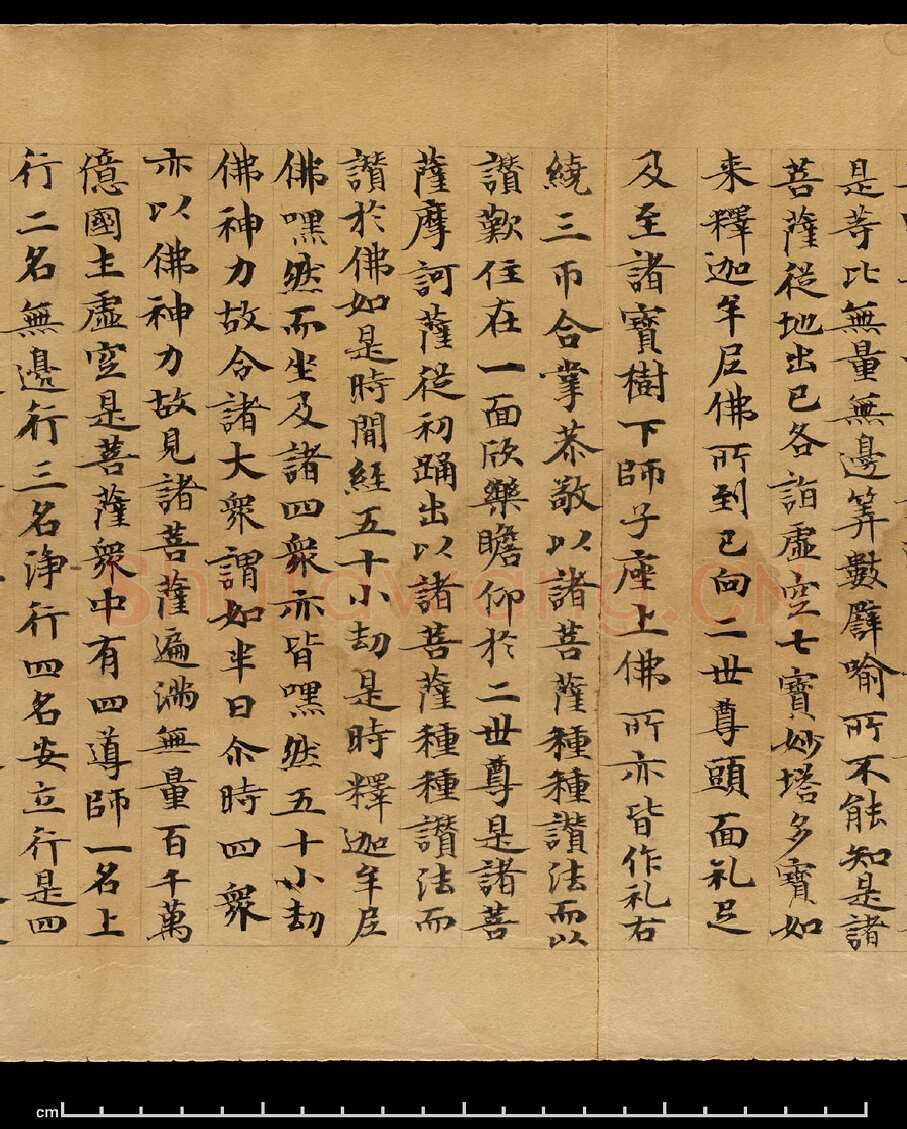 是等比無量無邊筭數譬喻所不能知是諸
菩薩從地出已各詣虛空七寶妙塔多寶如
来釋迦牟尼佛所到已向二世尊頭面礼足
及至諸寶樹下師子座上佛所亦皆作礼右
繞三帀合掌恭敬以諸菩薩種種讃法而以
讃歎住在一面欣樂瞻仰於二世尊是諸菩
薩摩訶薩從初踊出以諸菩薩種種讃法而
讃於佛如是時間經五十小劫是時釋迦牟尼
佛嘿然而坐及諸四衆亦皆嘿然五十小劫
佛神力故令諸大衆謂如半日尒時四衆
亦以佛神力故見諸菩薩遍滿無量百千萬
億國土虛空是菩薩衆中有四導師一名上
行二名無邊行三名淨行四名安立行是四
Shufawang.CN
cm